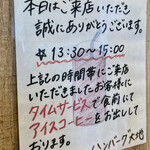 本日はご来店いただき
誠にありがとうございます。
☆ 13:30~15:00
上記の時間帯にご来店
いただきましたお客様に
タイムサービスで食前にて
アイスコーヒーをお出しして
おります。
ハンバーグ大地